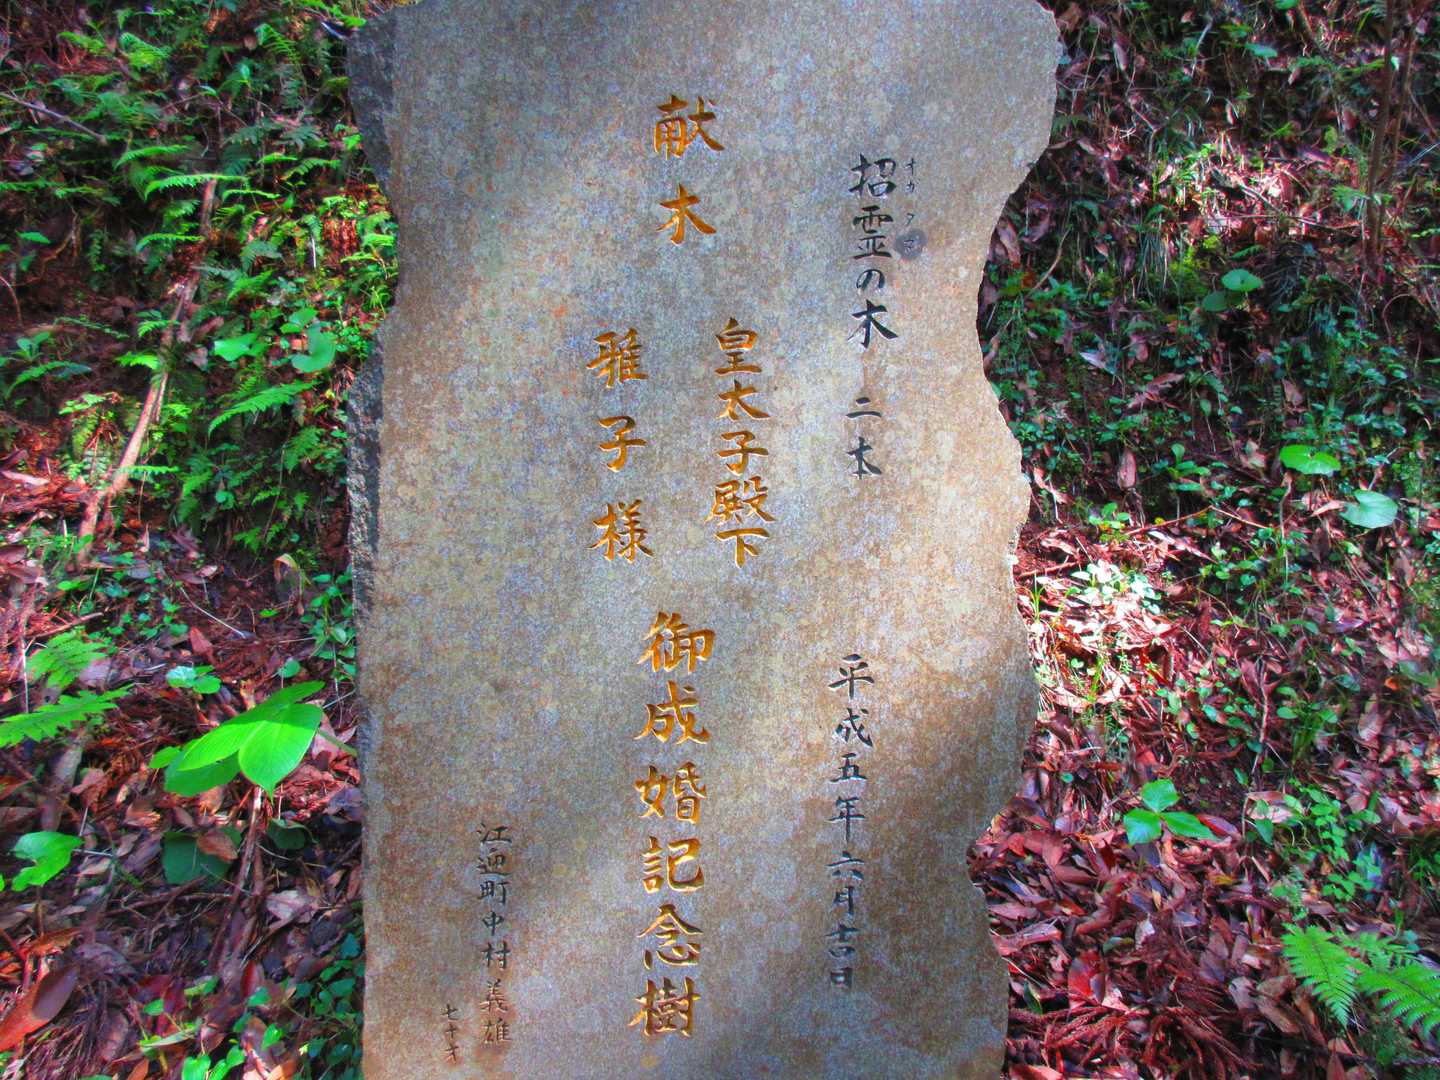 招霊の木 二本 平成五年六月吉日
オカタマ
献木 皇太子殿下
雅子様
御成婚記念樹
江迎町中村義雄
七十才